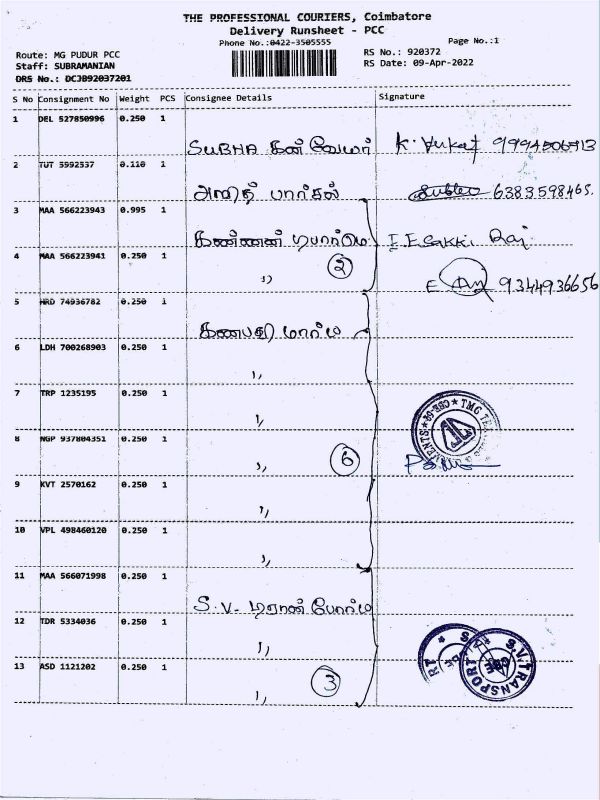 THE PROFESSIONAL COURIERS, Coimbatore
Delivery Runsheet - PCC
Phone No.:0422-3505555
Page No.:1
Route: MG PUDUR PCC
RS No.: 920372
Staff: SUBRAMANIAN
RS Date: 09-Apr-2022
DRS No.: DCJB92037201
S No Consignment No Weight PCS Consignee Details Signature
1 DEL 527850996 0.250 1
SUBHA
2 TUT 5992537 0.110 1
பார்சல் 6383598465.
3 MAA 566223943 0.995 1
கண்ணன்
4 MAA 566223941 0.250 1
2
,, 9344936656
5 HRD 74936782 0.250 1
கணபதி
6 LDH 700268903 0.250 1
,,
7 TRP 1235195 0.250 1
,,
8 NGP 937804351 0.250 1
,, 6
9 KVT 2570162 0.250 1
,,
10 VPL 498460120 0.250 1
,,
11 MAA 566071998 0.250 1
S.V.
12 TDR 5334036 0.250 1
,,
S.V. TRANSPORT
CBE
13 ASD 1121202 0.250 1
,, 3